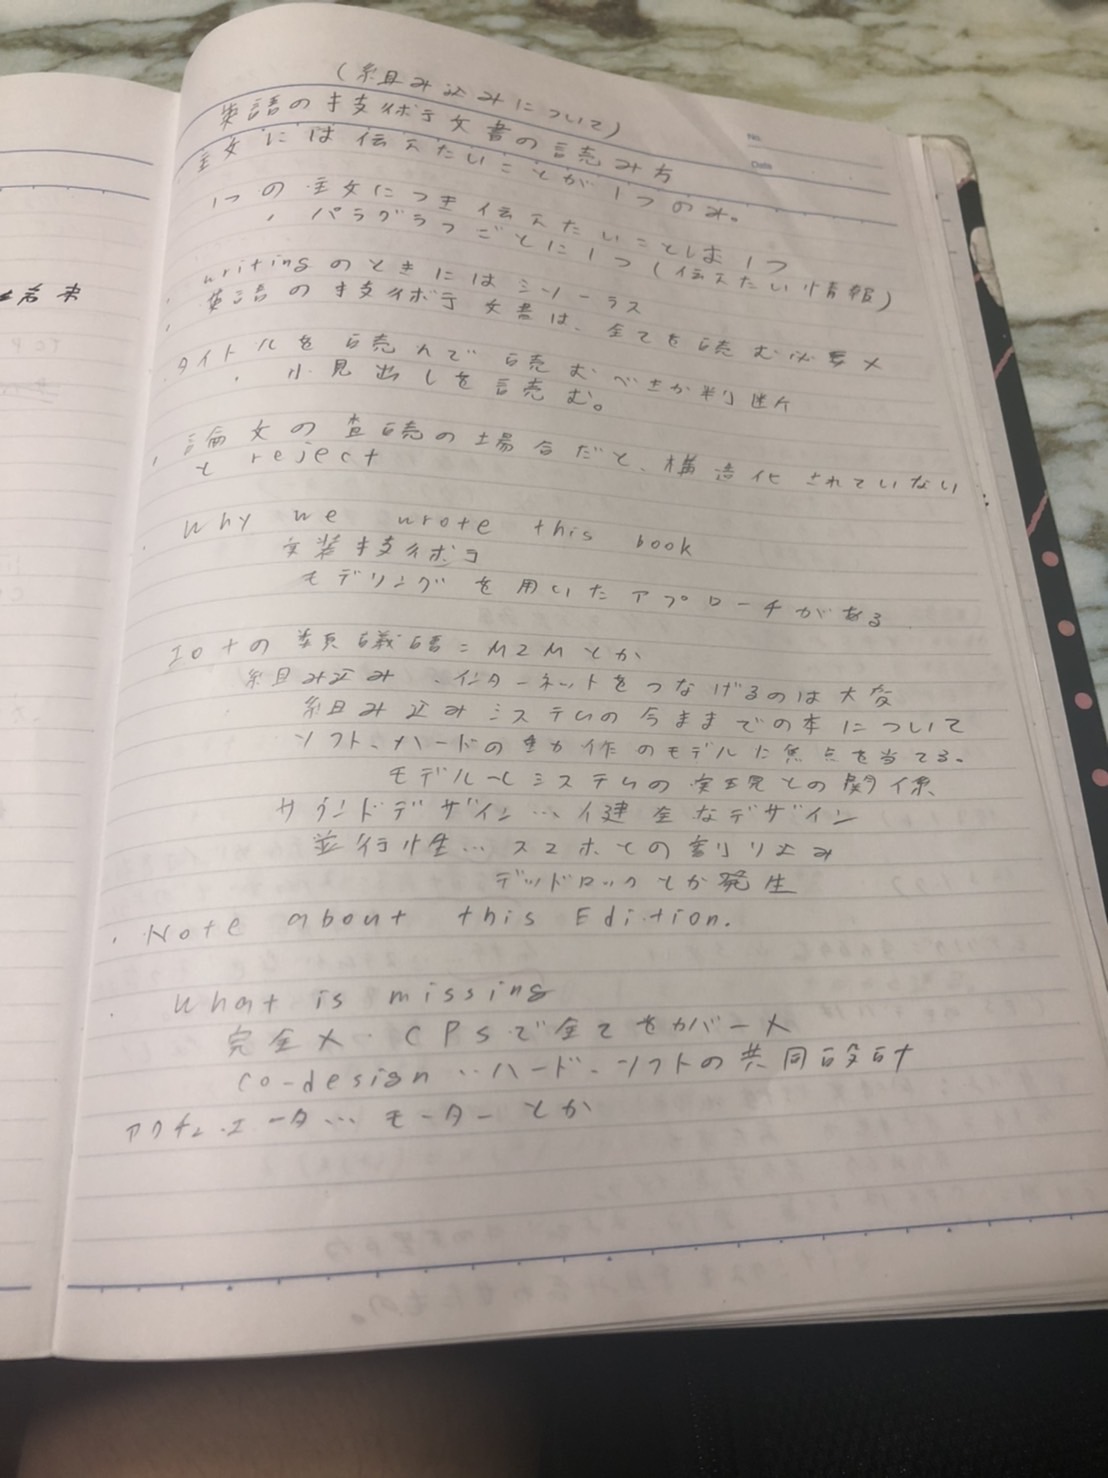 (組み込みについて)
英語の技術文書の読み方
主文には伝えたいことが1つのみ。
1つの主文につき伝えたいことは1つ
・パラグラフごとに1つ(伝えたい情報)
・writingのときにはシソーラス
・英語の技術文書は、全てを読む必要×
・タイトルを読んで読むべきか判断
・小見出しを読む。
・論文の査読の場合だと、構造化されていない
とreject
・Why we wrote this book
実装技術
モデリングを用いたアプローチがある
IoTの類義語=M2Mとか
組み込み、インターネットをつなげるのは大変
組み込みシステムの今までの本について
ソフト、ハードの動作のモデルに焦点を当てる。
モデルとシステムの実現との関係
サウンドデザイン…健全なデザイン
並行性…スマホとの割り込み
デッドロックとか発生
・Note about this Edition.
・What is missing
完全×・CPSで全てをカバー×
co-design…ハード、ソフトの共同設計
アクチュエータ…モーターとか